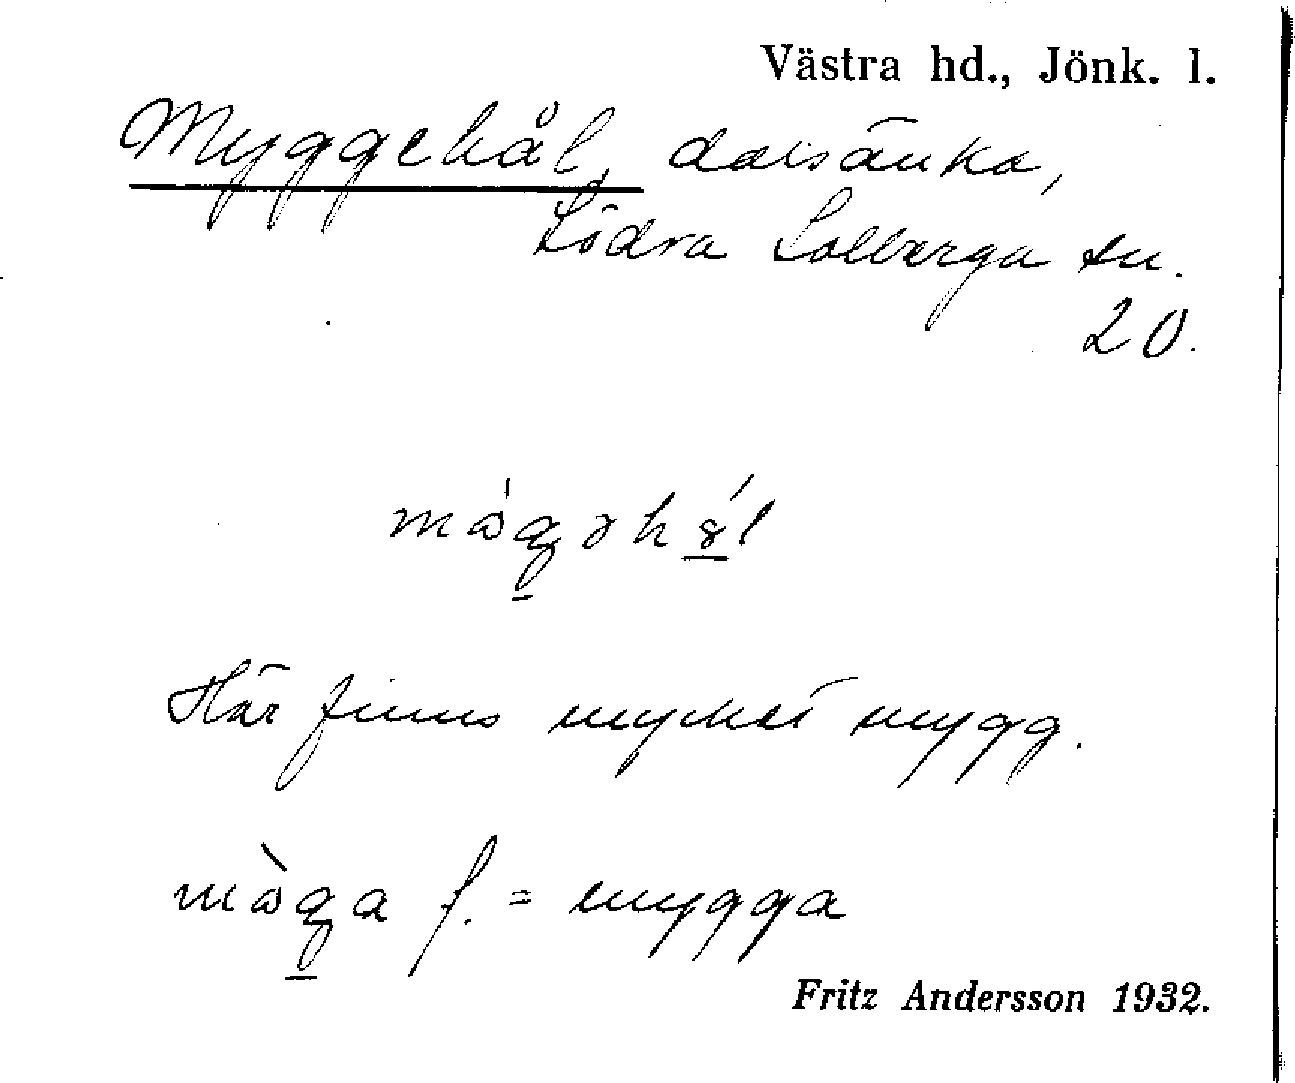 Västra hd., Jönk. l.
Myggehål, dalsänka,
Södra Solberga sn.
20.
Här finns mycket mygg.
f. = mygga
Fritz Andersson 1932.